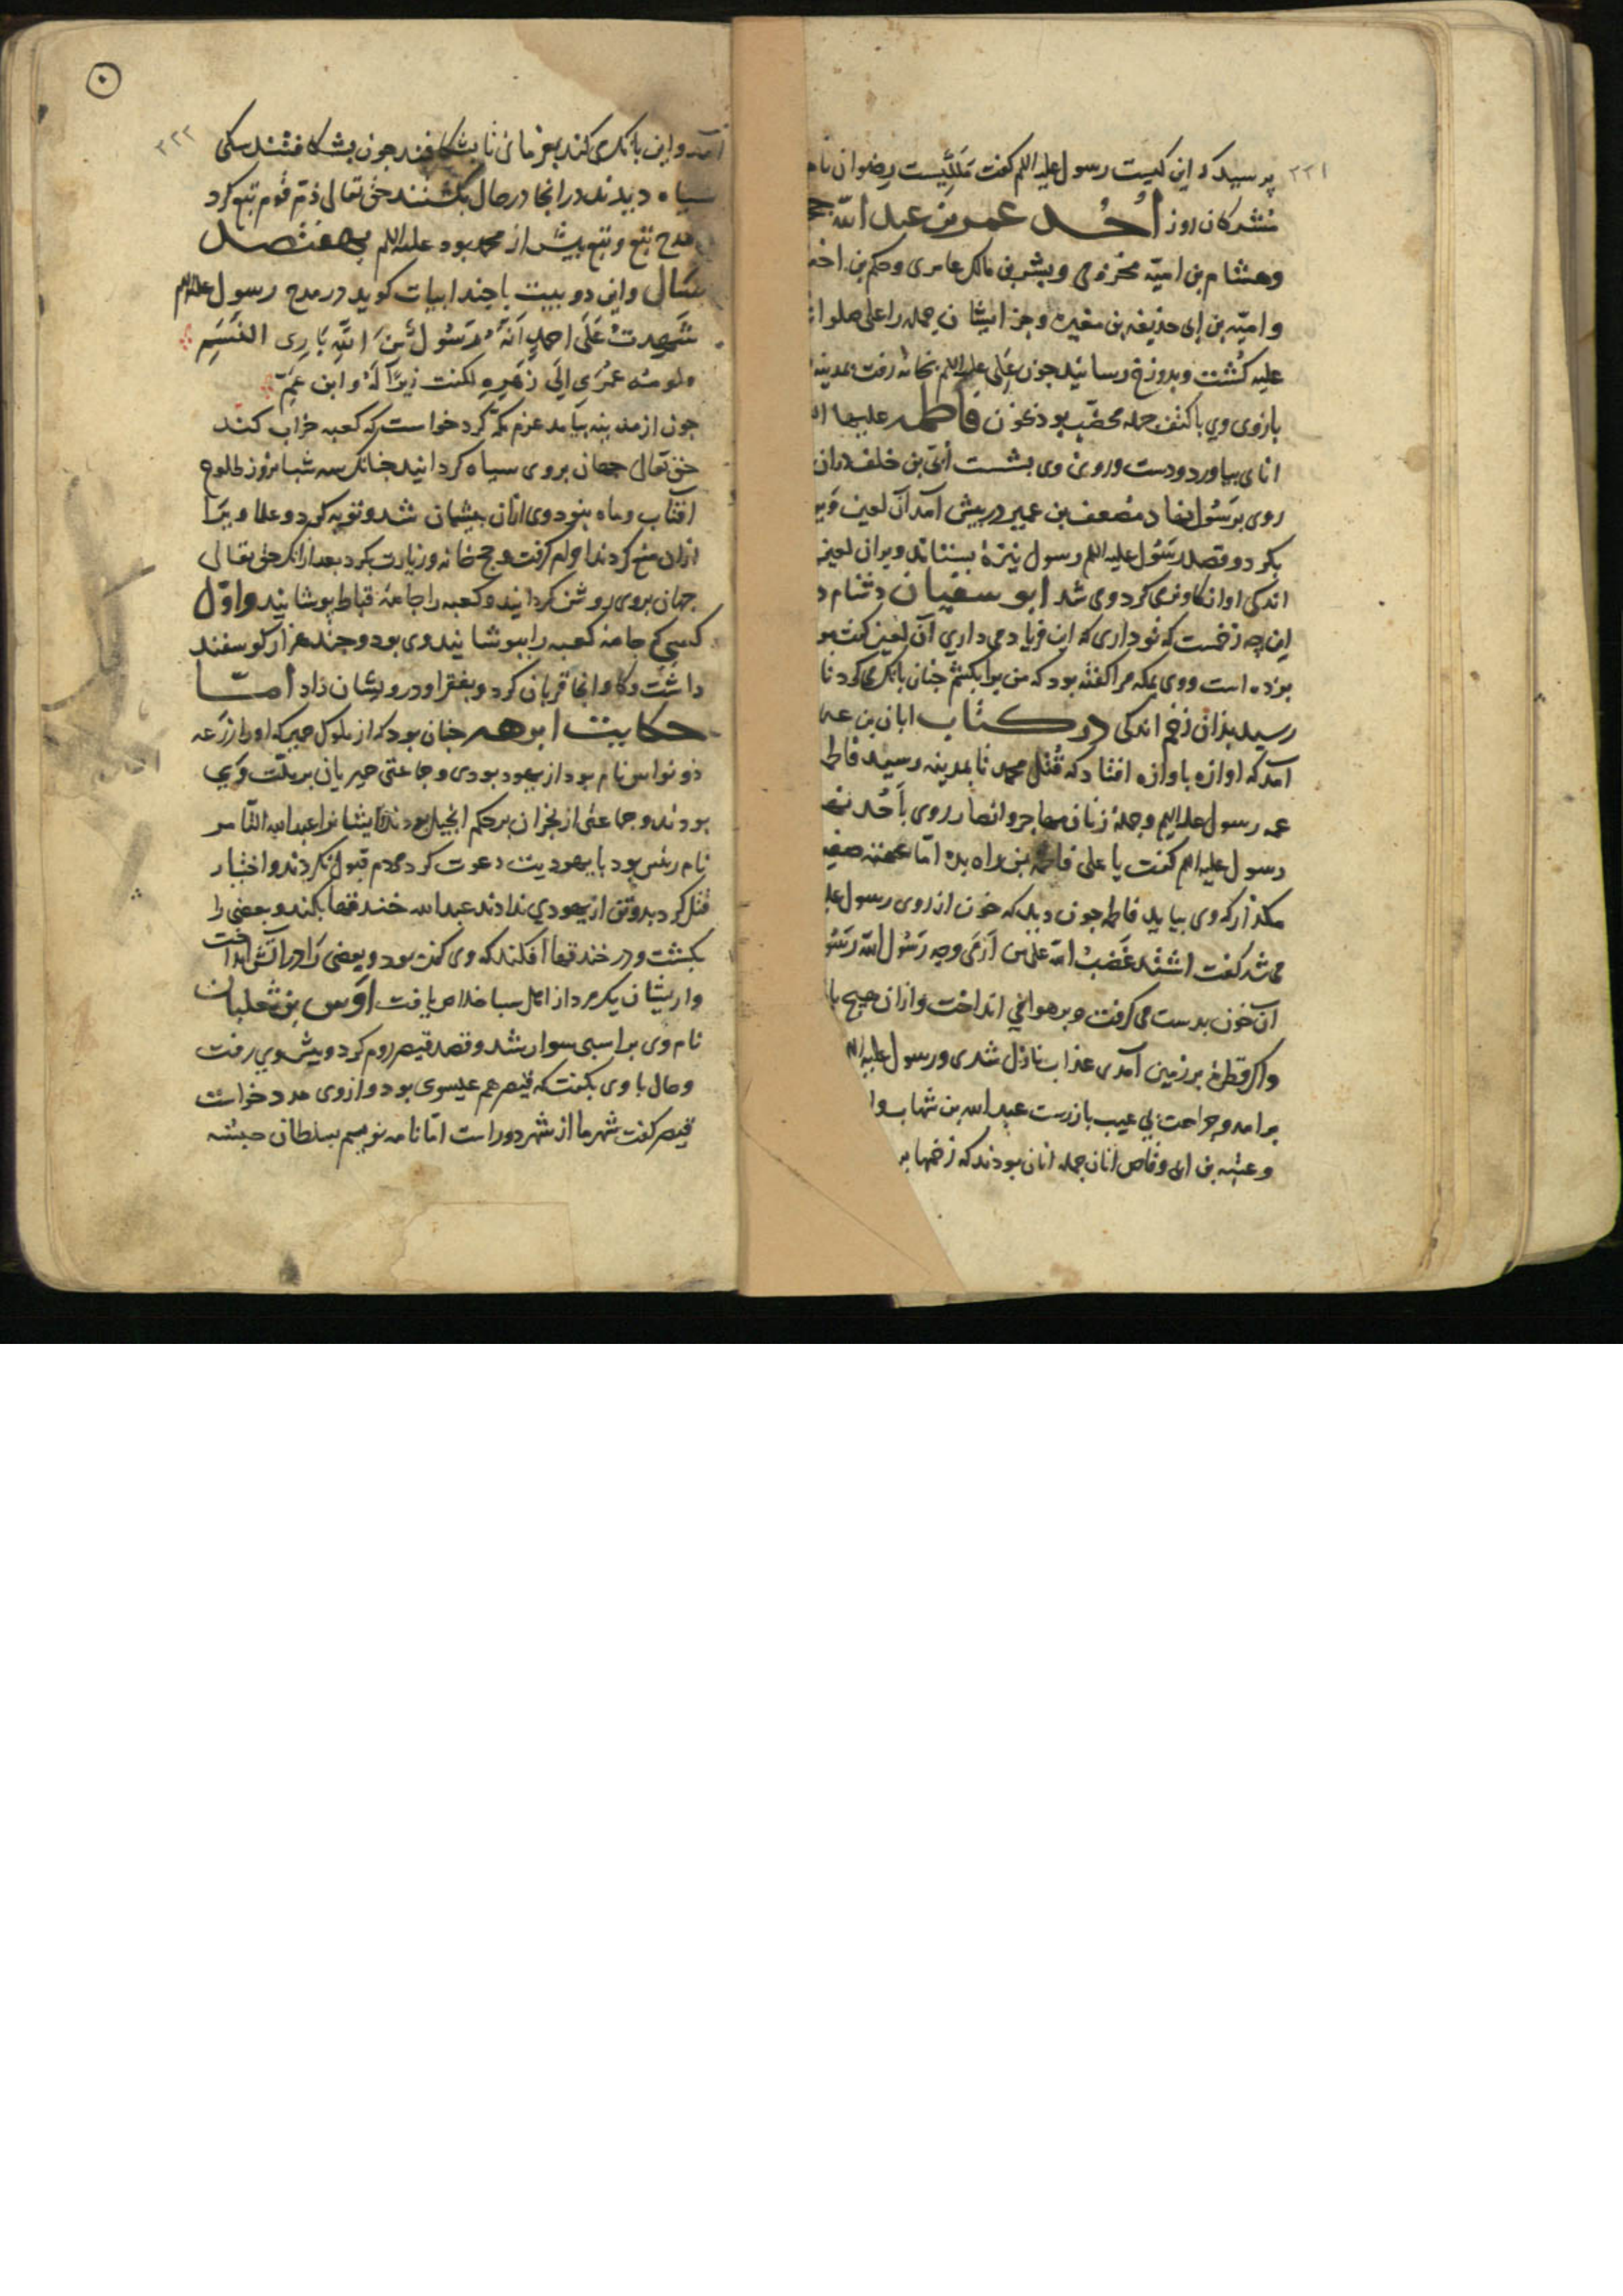 ۲۲۱
پرسید که این کیست رسول علیه السلم کفت ملکیست رضوان نام
مشرکان روز اُحُد عمرو بن عبد الله
وهشام بن امیّه مخزومی وبشر بن مالک عامری وحکم بن اخنس
وامیّه بن ابی حذیفه بن مغیره وجز ایشان جمله را علی صلوات
علیه کُشت وبدوزخ رسانید جون علی علیه السلم بخانه رفت بمدینه
بازوی وی با کتف جمله مخضّب بود بخون فاطمه علیها
انای بیاورد ودست وروی وی بشست اُبَیّ بن خلف دران
روی برسُول نهاد مصعب بن عمیر در پیش آمد آن لعین
بکرد وقصد رسُول علیه السلم رسول نیزهٔ بستاند وبران لعین
اندکی اواز کاو می کرد وی شد ابو سفیان دشنام
این جه زخمست که تو داری که این فریاد می داری آن لعین کفت
بزده است ووی بمکه مرا کفته بود که من ترا بکشم جنان بانک می کرد تا
رسید بذان زخم اندکی در کتاب ابان بن
آمد که اوازه باوازه افتاد که قُتل محمد تا بمدینه رسید فاطمه
عمه رسول علیه السلم وجملهٔ زنان مهاجر وانصار روی باُحُد
رسول علیه السلم کفت یا علی فاطمه بمن راه بده امّا عمتت صفیه
مکذار که وی بیاید فاطمه جون دید که خون از روی رسول
می شد کفت اشتد غَضَبُ الله علی من اَدْمَی وجه رَسُول الله
آن خون بدست می کرفت وبر هوا می انداخت وازان هیج
واکر قطرهٔ بر زمین آمدی عذاب نازل شدی ورسول علیه
برامد وجراحت بی عیب باز رست عبد الله بن شهاب
وعتبه بن ابی وقاص انان جمله انان بودند که زخمها
۲۲۲
آمد واین بانک می کند بفرمای تا بشکافند جون بشکافتند سکی
سیاه دیدند در انجا در حال بکشتند حق تعالی ذم قوم تبع کرد
مدح تبع وتبع بیش از محمد بود علیه السلم بهفتصد
سال واین دو بیت با جند ابیات کوید در مدح رسول علیه السلم
شَهِدتُ عَلَی احمدٍ اَنَّهُ رَسُولٌ مِنَ اللهِ بَارِی النَسَمِ
ولو مُدّ عمُرِی اِلَی عُمرِهِ لکنت وزیرًا لَهُ وابن عَمّ
جون از مدینه بیامد عزم مکه کرد خواست که کعبه خراب کند
حق تعالی جهان بروی سیاه کردانید جنانک سه شبانروز طلوع
افتاب وماه نبود وی ازان پشیمان شد وتوبه کرد وعلما ویرا
ازان منع کردند احرام کرفت وحج خانه وزیارت بکرد بعد ازانک حق تعالی
جهان بروی روشن کردانید وکعبه را جامهٔ قباطی پوشانید واوّل
کسی که جامه کعبه را بپوشانید وی بود وجند هزار کوسفند
داشت وکاو انجا قربان کرد وبفقرا ودرویشان داد امّا
حکایت ابرهه جنان بود که از ملوک حمیر که اورا زرعه
ذو نواس نام بود از یهود بودی وجماعتی حمیریان بر ملّت وی
بودند وجماعتی از نجران بر حکم انجیل بودند وایشانرا عبد الله الثامر
نام رئیس بود با یهودیت دعوت کرد مردم قبول نکردند واختیار
قتل کردند وتن از یهودی ندادند عبد الله خندقها بکند وبعضی را
بکشت ودر خندقها افکند که وی کنده بود وبعضی را در آتش انداخت
وازیشان یکمرد از اهل سبا خلاص یافت اوس بن ثعلبان
نام وی بر اسبی سوار شد وقصد قیصر روم کرد وپیش وی رفت
وحال با وی بکفت که قیصر هم عیسوی بود وازوی مدد خواست
قیصر کفت شهر ما از شهر دور است امّا نامه نویسم بسلطان حبشه